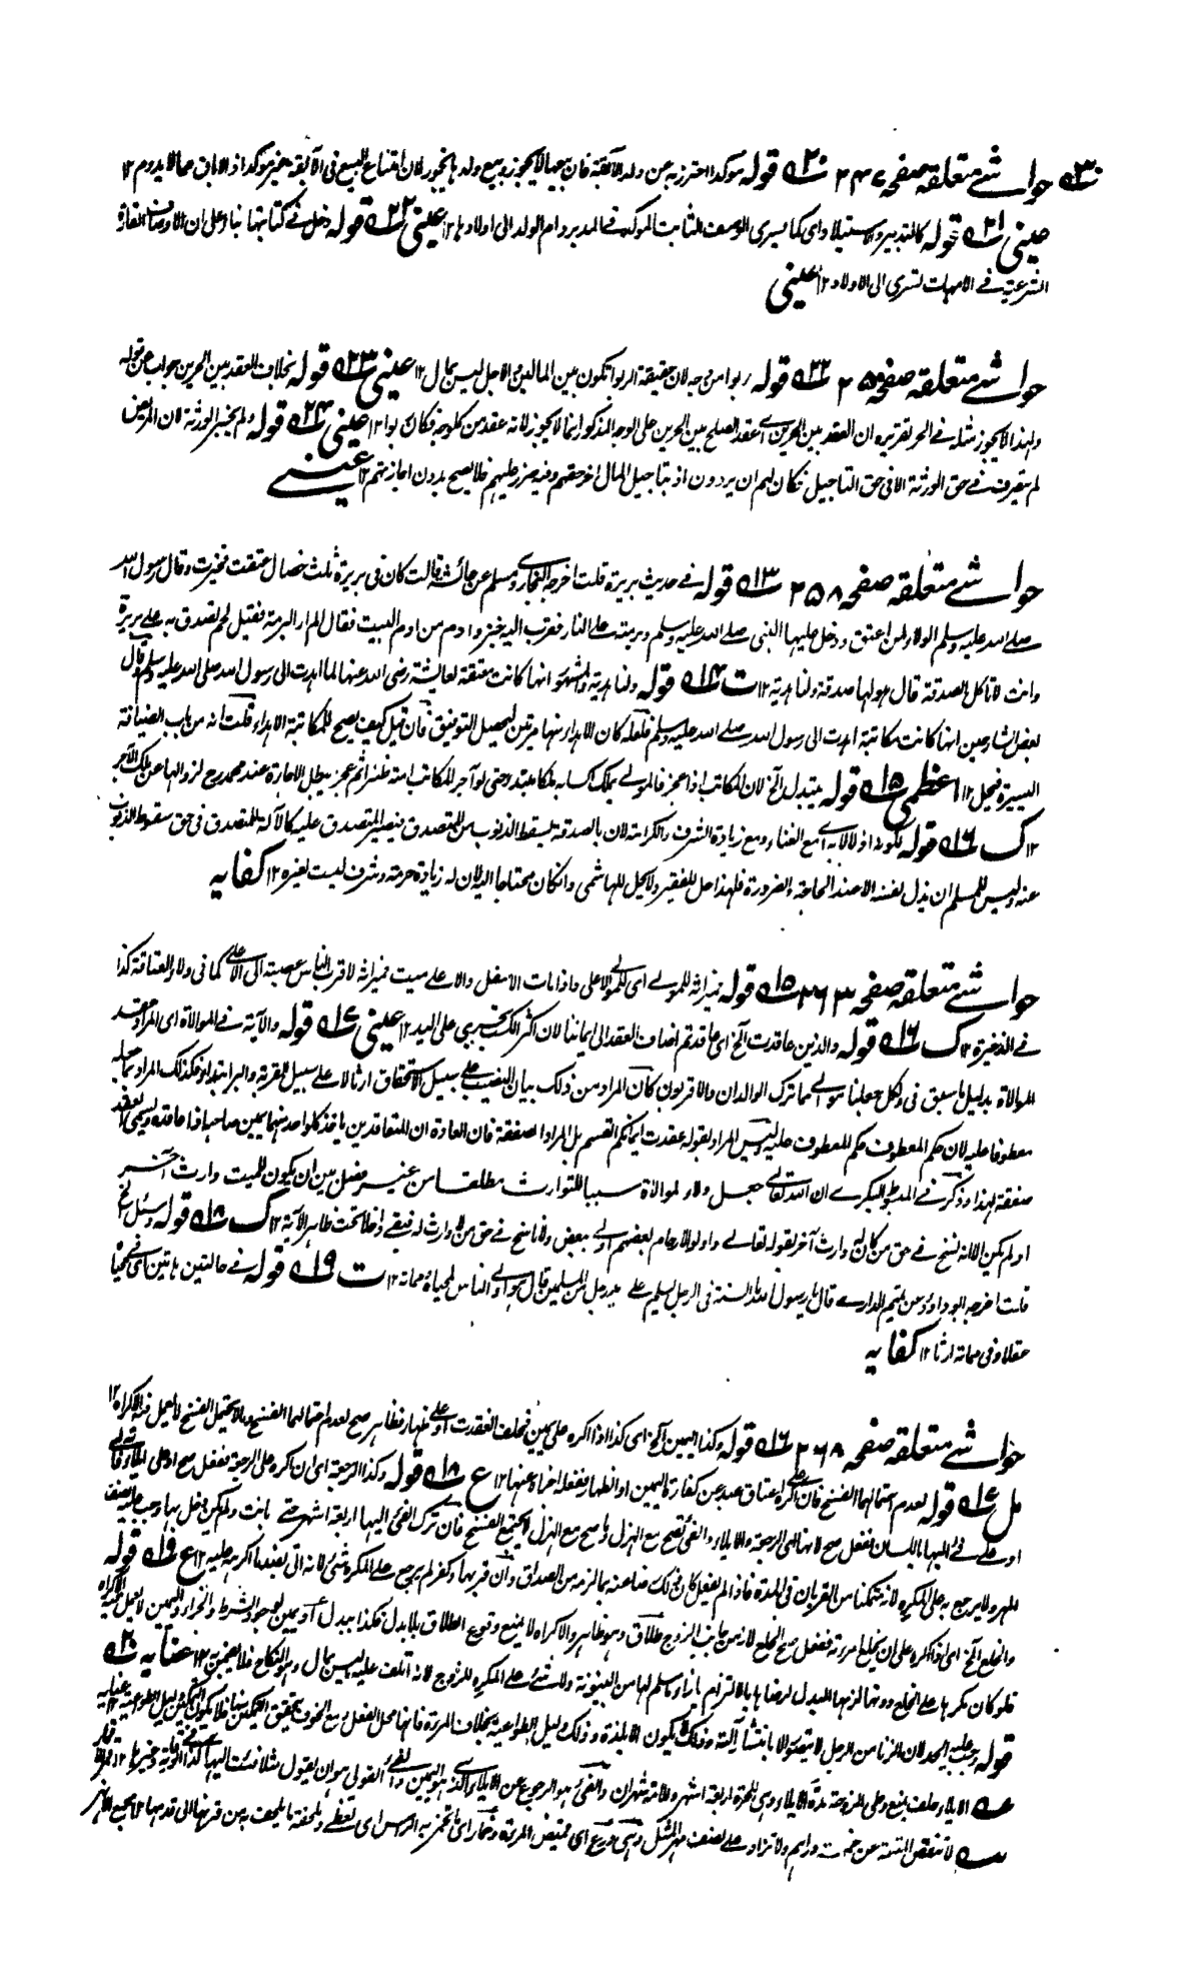 حواشے متعلقہ صفحہ ۲۴۷ ۲۰ قولہ موکدا احترز بہ عن ولد الآبقۃ فان بیعہا لایجوز وبیع ولدہا یجوز لان امتناع البیع فی الآبقۃ غیر موکد اذ الاباق مما لا یدوم ۱۲
عینی ۲۱ قولہ کالتدبیر والاستیلاد ای کما یسری الوصف الثابت الموکد فے المدبر وام الولد الی اولادہا ۱۲ عینی ۲۲ قولہ دخل فے کتابتہا بناء علی ان الاوصاف القارۃ
الشرعیۃ فے الامہات تسری الی الاولاد ۱۲ عینی
حواشے متعلقہ صفحہ ۲۵۰ ۲۲ قولہ ربوا من وجہ لان حقیقۃ الربوا تکون بین المالین والاجل لیس بمال ۱۲ عینی ۲۳ قولہ بخلاف العقد بین الحرین جواب عن قولہ
ولہذا لایجوز مثلہ فے الحر تقریرہ ان العقد بین الحرین ای عقد الصلح بین الحرین علی الوجہ المذکور انما لا یجوز لانہ عقد من کل وجہ فکان ربوا ۱۲ عینی ۲۴ قولہ ولم یجز الورثۃ لان المریض
لم یتصرف فے حق الورثۃ الا فی حق التاجیل فکان لہم ان یردون اذ بتاجیل المال اخر حقہم وفیہ ضرر علیہم فلا یصح بدون اجازتہم ۱۲ عینے
حواشے متعلقہ صفحہ ۲۵۸ ۱۳ قولہ فے حدیث بریرۃ قلت اخرجہ البخاری ومسلم عن عائشۃ قالت کان فی بریرۃ ثلث خصال عتقت فخیرت وقال رسول اللہ
صلے اللہ علیہ وسلم الولاء لمن اعتق ودخل علیہا النبی صلے اللہ علیہ وسلم وبرمتہ علے النار فقرب الیہ خبز وادم من ادم البیت فقال الم ار البرمۃ فقیل لحم تصدق بہ علے بریرۃ
وانت لا تاکل الصدقۃ قال ہو لہا صدقۃ ولنا ہدیۃ ۱۲ ت ۱۴ قولہ ولنا ہدیۃ والمشہور انہا کانت معتقۃ لعایشۃ رضی اللہ عنہا لما اہدت الی رسول اللہ صلی اللہ علیہ وسلم وقال
بعض الشارحین انہا کانت مکاتبۃ اہدت الی رسول اللہ صلے اللہ علیہ وسلم فلعلہ کان الاہداء منہا مرتین لیحصل التوفیق فان قیل کیف یصح للمکاتبۃ الاہداء قلت انہ من باب الضیافۃ
الیسیرۃ فیحل ۱۲ اعظمی ۱۵ قولہ یتبدل الخ لان المکاتب اذا عجز فالمولے یملک اکسابہ ملکا مبتدء حتی لو آجر المکاتب امتہ ظئرا ثم عجز یبطل الاجارۃ عند محمدرح لزوالہا عن ملک الآجر
۱۲ ک ۱۶ قولہ لکونہ اذلالا بہ ای مع الغناء ومع زیادۃ الشرف والکرامۃ لان بالصدقۃ یسقط الذنوب من المتصدق فیصیر المتصدق علیہ کالآلۃ للمتصدق فی حق سقوط الذنوب
عنہ ولیس للمسلم ان یذل نفسہ الا عند الحاجۃ والضرورۃ فلہذا حل للفقیر ولا یحل للہاشمی وان کان محتاجا الیہ لان لہ زیادۃ حرمۃ وشرف لیست لغیرہ ۱۲ کفایہ
حواشے متعلقہ صفحہ ۲۶۳ ۱۵ قولہ فمیراثہ للمولے ای للمولے الاعلی واذا مات الاسفل والاعلے میت فمیراثہ لاقرب الناس عصبۃ الی الاعلے کما فی ولاء العتاقۃ کذا
فے الذخیرۃ ۱۲ ک ۱۶ قولہ والذین عاقدت الخ ای عاقدتم اضاف العقد الی ایماننا لان اکثر الکسب یجری علی الید ۱۲ عینی ۱۷ قولہ والآیۃ فے الموالاۃ ای المراد عقد
الموالاۃ بدلیل ما سبق فی ولکل جعلنا موالے مما ترک الوالدان والاقربون کان المراد من ذلک بیان النصیب علے سبیل الاستحقاق ارثا لا علے سبیل القربۃ والبر ابتداء فکذلک المراد بما جعلہ
معطوفا علیہ لان حکم المعطوف حکم المعطوف علیہ ولیس المراد بقولہ عقدت ایمانکم القسم بل المراد الصفقۃ فان العادۃ ان المتعاقدین یاخذ کل واحد منہما یمین صاحبہ اذا عاقدہ ویسمی العقد
صفقۃ لہذا وذکر فے المبسوط البکرے ان اللہ تعالے جعل ولاء الموالاۃ سببا للتوارث مطلقا من غیر فصل بین ان یکون للمیت وارث آخر
او لم یکن الا انہ نسخ فے حق من کان لہ وارث آخر بقولہ تعالے واولوا الارحام بعضہم اولے ببعض ولا ناسخ فے حق من لا وارث لہ فبقے داخلا تحت ظاہر الآیۃ ۱۲ ک ۱۸ قولہ وسئل الخ
قلت اخرجہ ابو داؤد عن تمیم الدارے قال یا رسول اللہ ما السنۃ فی الرجل یسلم علے ید رجل من المسلمین قال ہو اولے الناس لمحیاہ ومماتہ ۱۲ ت ۱۹ قولہ فے حالتین ہاتین ای فے محیاہ
عقلا وفی مماتہ ارثا ۱۲ کفایہ
حواشے متعلقہ صفحہ ۲۶۸ ۱۶ قولہ وکذا الیمین الخ ای کذا اذا اکرہ علی یمین فحلف انعقدت او علے ظہار فظاہر صح لعدم احتمالہما الفسخ وما لا یحتمل الفسخ لا یعمل فیہ الاکراہ ۱۲
مل ۱۷ قولہ لعدم احتمالہما الفسخ فان اکرہ علے اعتاق عبد عن کفارۃ الیمین او الظہار ففعلہ اجزاہ عنہا ۱۲ ع ۱۸ قولہ وکذا الرجعۃ ای ان اکرہ علی الرجعۃ ففعل صح او علی الایلاء فآلے
او علے فئ الیہا باللسان ففعل صح لانہا ای الرجعۃ والایلاء والفئ تصح مع الہزل وما صح مع الہزل لا یحتمل الفسخ فان ترک الفئ الیہا اربعۃ اشہر حتے بانت ولم یکن دخل بہا وجب علیہ نصف
المہر ولا یرجع بہ علی المکرہ لانہ متمکنا من القربان فی المدۃ فاذا لم یفعل کان ذلک رضا منہ بما لزمہ من الصداق وان قربہا وکفر لم یرجع علے المکرہ بشئ لانہ اتی بضد ما اکرہہ علیہ ۱۲ ع ۱۹ قولہ
والخلع الخ ای اذا اکرہ علی ان یخلع امرتہ ففعل صح الخلع لانہ من جانب الزوج طلاق وہو ظاہر والاکراہ لا یمنع وقوع الطلاق بلا بدل فکذا ببدل او یمین لوجود الشرط والجزاء والیمین لا یعمل فیہ الاکراہ
فلو کان مکرہا علے الخلع دونہا لزمہا البدل لرضاہا بالالتزام بازاء ما سلم لہا من البینونۃ ولا شئ علے المکرہ للزوج لانہ اتلف علیہ ما لیس بمال وہو النکاح فلا یضمن بہ ۱۲ عنایہ ۲۰
قولہ وجب علیہ الحد لان الزنا من الرجل لا یتصور الا بانتشار آلتہ وذلک لا یکون الا بلذۃ وذلک دلیل الطواعیۃ بخلاف المرءۃ فانہا محل الفعل ومع الخوف یتحقق التمکین منہا فلا یکون التمکین دلیل الطواعیۃ ۱۲ عنایہ
الایلاء حلف یمنع وطی الزوجۃ مدۃ الایلاء وہی للحرۃ اربعۃ اشہر وللامۃ شہران والفئ ہو الرجوع عن الایلاء الذی ہو الیمین والفئ القولی ہو ان یقول مثلا فئت الیہا کذا فی الوقایۃ وغیرہا ۱۲
لا تنقص المتعۃ عن خمسۃ دراہم ولا تزاد علے نصف مہر المثل وہی درع ای قمیص المرءۃ وخمار ای ما تخمر بہ الراس ای تغطے وملحفۃ ما یلتحف بہ من قرنہا الی قدمہا ۱۲ مجمع الانہر